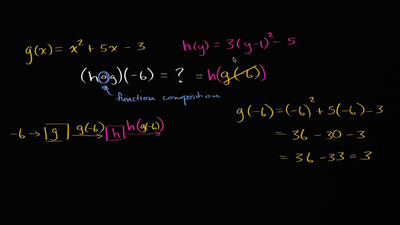 g(x) = x² + 5x - 3
h(y) = 3(y-1)² - 5
(h∘g)(-6) = ? = h(g(-6))
function composition
g(-6) = (-6)² + 5(-6) - 3
= 36 - 30 - 3
= 36 - 33 = 3
-6 → g g(-6) → h h(g(-6)) →